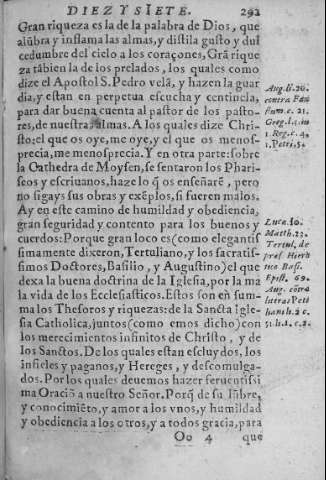 DIEZ Y SIETE. 292
Gran riqueza es la de la palabra de Dios, que
alũbra y inflama las almas, y distila gusto y dul
cedumbre del cielo a los coraçones, Grã rique
za tãbien la de los prelados, los quales como
dize el Apostol S. Pedro velã, y hazen la guar
dia, y estan en perpetua escucha y centinela,
para dar buena cuenta al pastor de los pasto-
res, de nuestras almas. A los quales dize Chri-
sto: el que os oye, me oye, y el que os menos-
precia, me menosprecia. Y en otra parte: sobre
la Cathedra de Moysen, se sentaron los Phari-
seos y escriuanos, haze lo q̃ os enseñarẽ, pero
no sigays sus obras y exẽplos, si fueren malos.
Ay en este camino de humildad y obediencia,
gran seguridad y contento para los buenos y
cuerdos: Porque gran loco es (como elegantis
simamente dixeron, Tertuliano, y los sacratis
simos Doctores, Basilio, y Augustino) el que
dexa la buena doctrina de la Iglesia, por la ma
la vida de los Ecclesiasticos. Estos son en sum-
ma los Thesoros y riquezas: de la Sancta Igle
sia Catholica, juntos (como emos dicho) con
los merecimientos infinitos de Christo, y de
los Sanctos. De los quales estan escluydos, los
infieles y paganos, y Hereges, y descomulga-
dos. Por los quales deuemos hazer feruentissi
ma Oraciõ a nuestro Señor. Porq̃ de su lũbre,
y conocimiẽto, y amor a los vnos, y humildad
y obediencia a los otros, y a todos gracia, para
Oo 4 que
Aug. li. 20.
contra Faus
sum c. 21.
Greg. l. 4. in
1. Reg. c. 4.
1. Petri. 5.
Luca. 10.
Matth. 23.
Tertul. de
præs. Heré
tico Basi.
Epist. 69.
Aug. cõtra
literas Peti